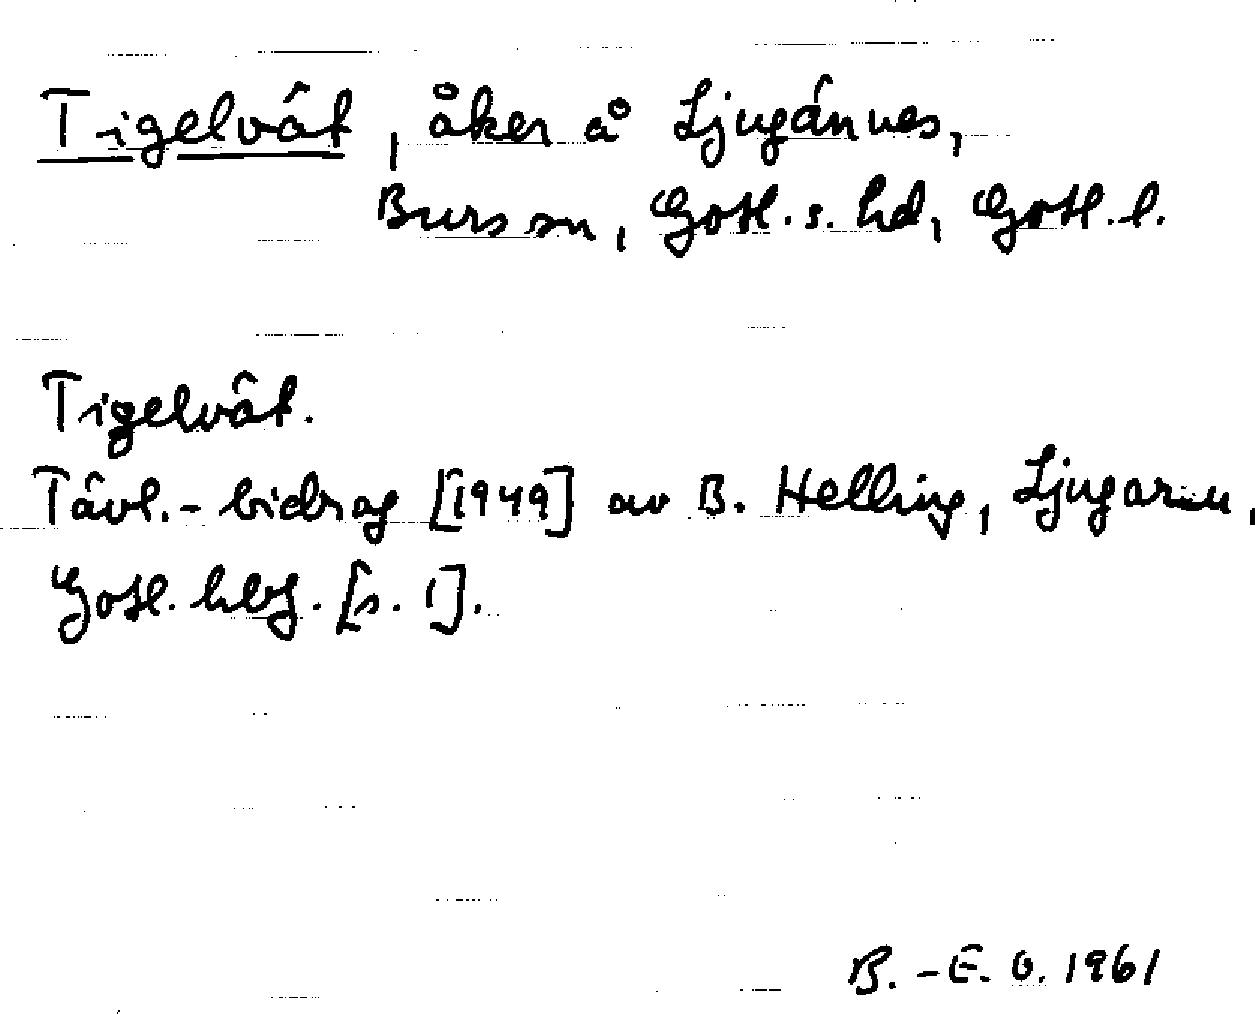 Tigelvât, åker å Ljugánnes,
Burs sn, Gotl. s. hd, Gotl. l.
Tigelvât.
Tävl.-bidrag [1949] av B. Helling, Ljugarn,
Gotl. hbf. [s. 1].
B.-E. O. 1961